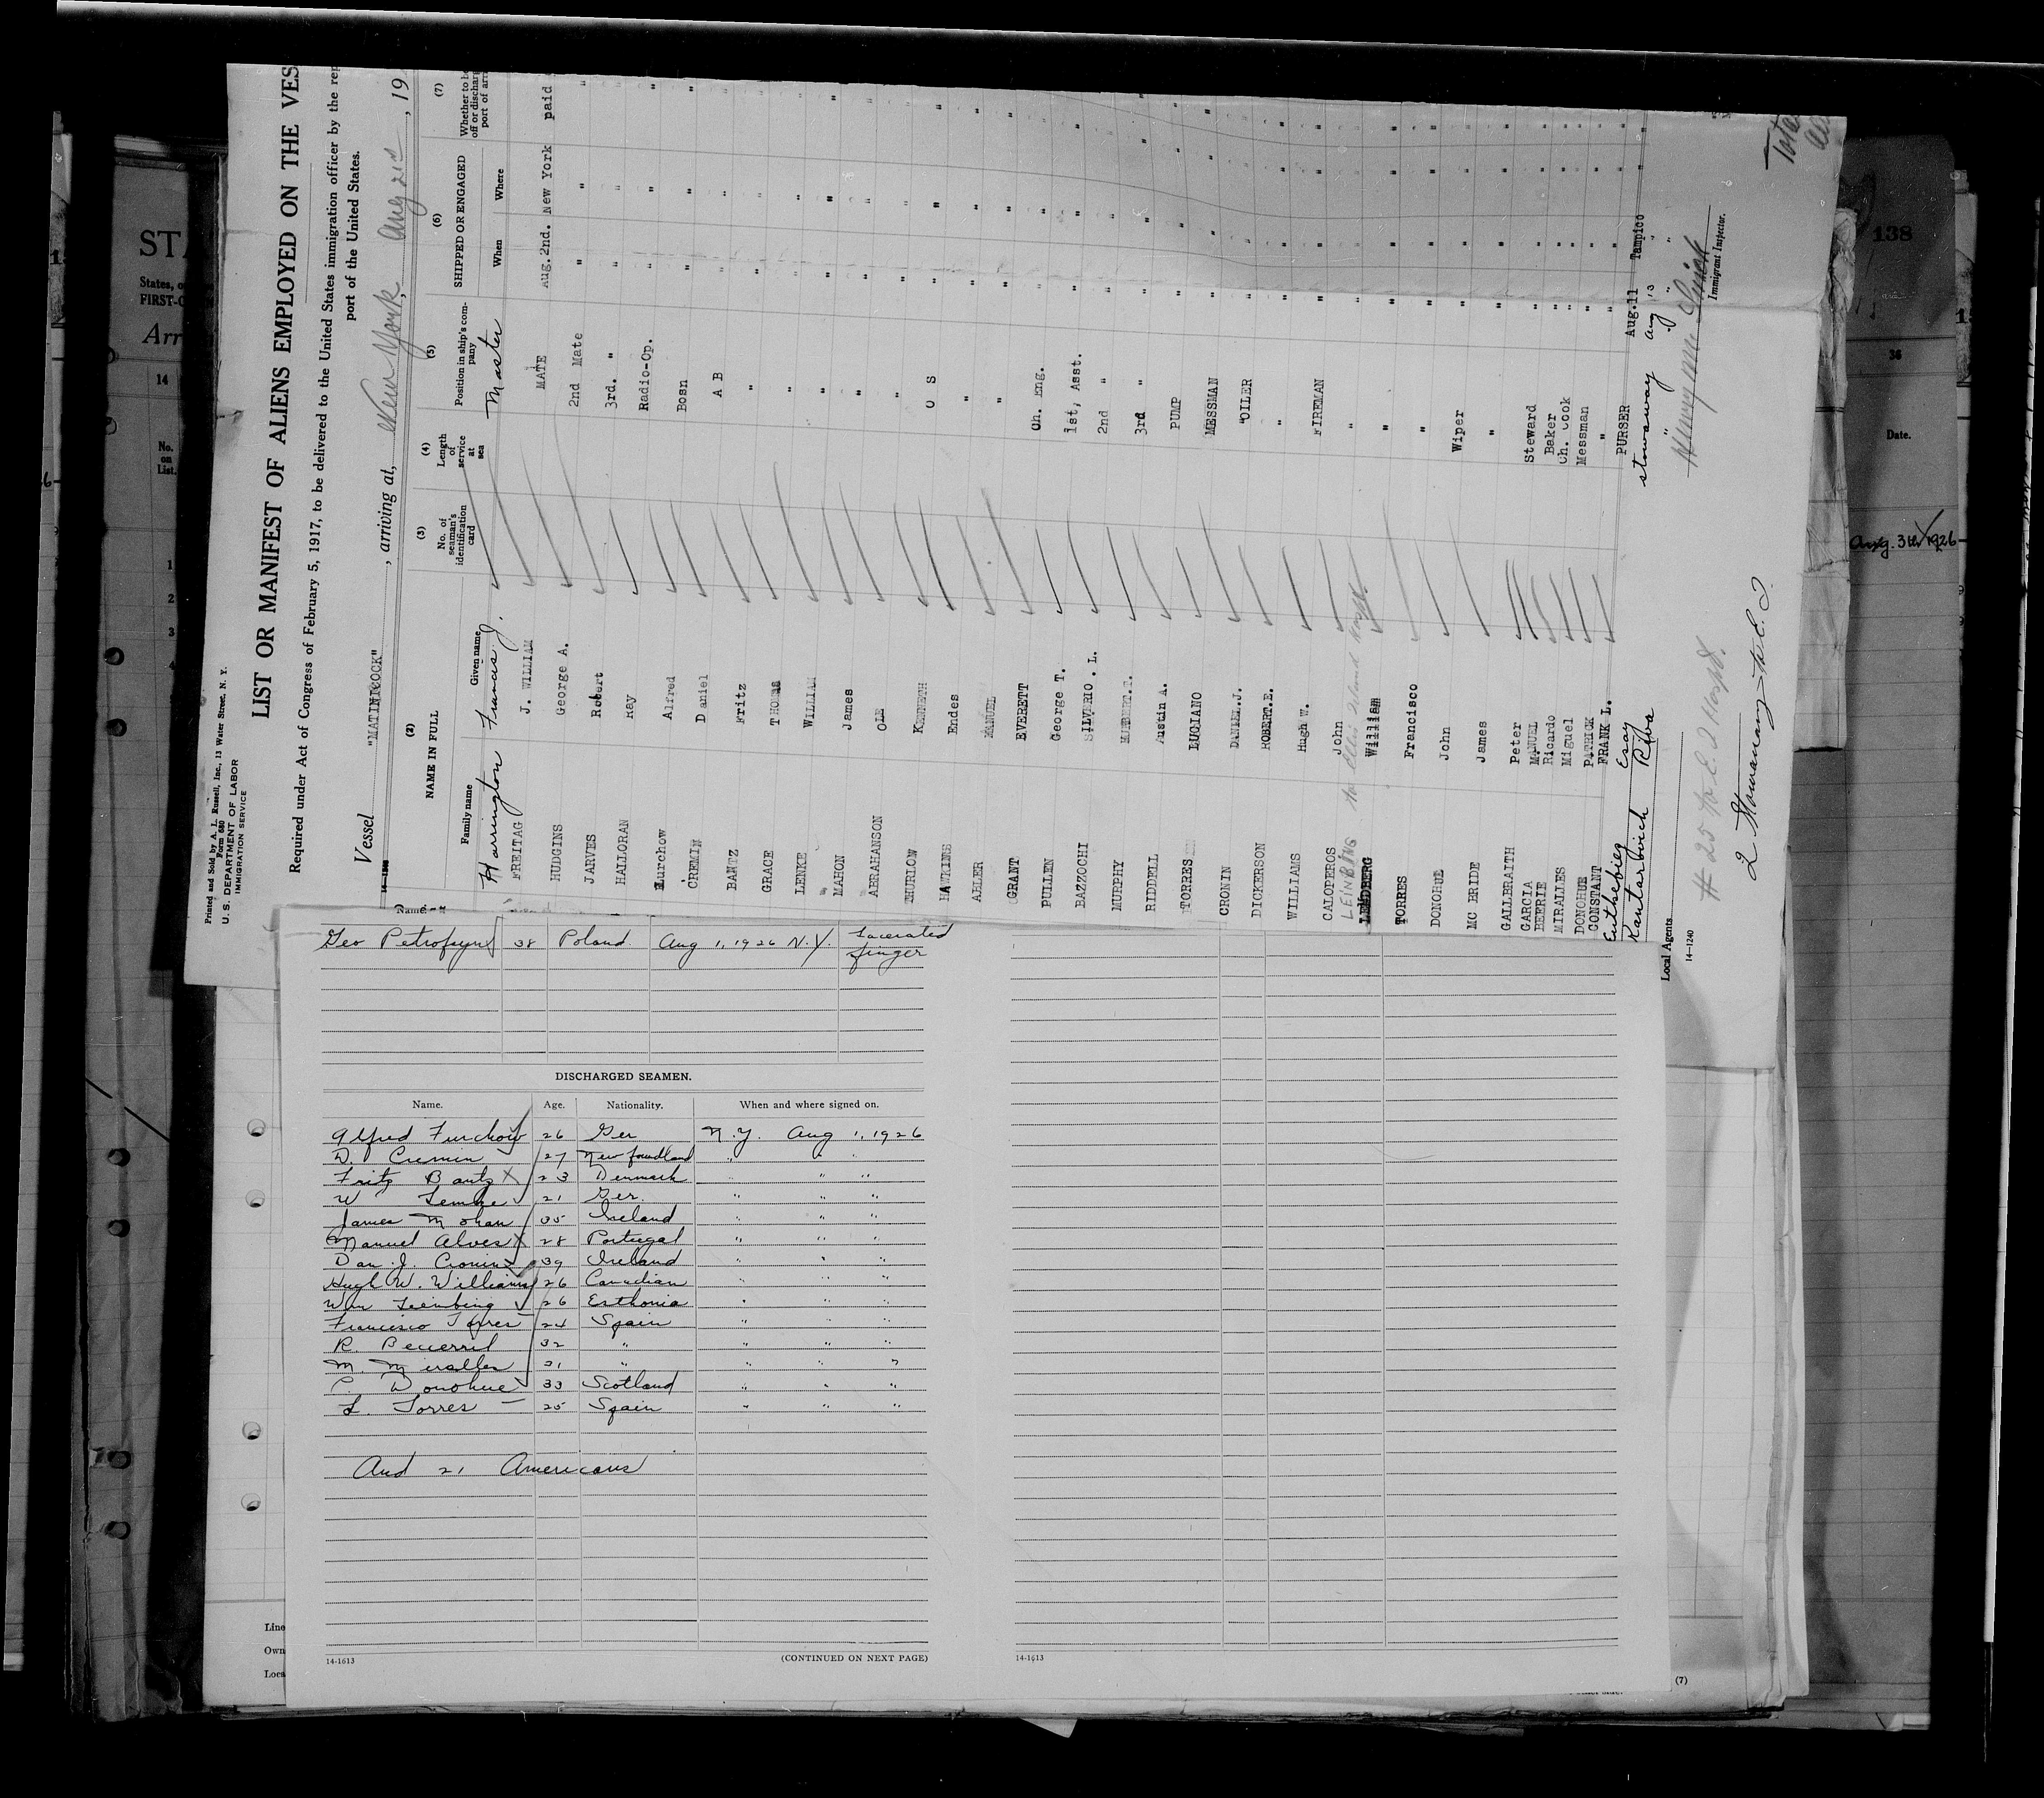 Printed and Sold by A. L. Russell, Inc., 13 Water Street, N. Y.
Form 680
U. S. DEPARTMENT OF LABOR
IMMIGRATION SERVICE
LIST OR MANIFEST OF ALIENS EMPLOYED ON THE VES
Required under Act of Congress of February 5, 1917, to be delivered to the United States immigration officer by the rep
port of the United States.
Vessel "MATINICOCK", arriving at, New York, Aug 21st, 19
(2) (3) (4) (5) (6) (7)
NAME IN FULL No. of seaman's identification card Length of service at sea Position in ship's company SHIPPED OR ENGAGED Whether to be off or discharg port of arri
Family name Given name When Where
Harrington Francis J. Master
FREITAG J. WILLIAM MATE Aug. 2nd. New York paid
HUDGINS George A. 2nd Mate " " "
JARVES Robert 3rd. " " " "
HALLORAN Ray Radio-Op. " " "
Furchow Alfred Bosn " " "
CREMIN Daniel A B " "
BANTZ Fritz " " "
GRACE THOMAS " " "
LENKE WILLIAM " " "
MAHON James " " "
ABRAHANSON OLE " " "
THURLOW KENNETH O S " "
HAWKINS Endes " " "
ALLER MANUEL " " "
GRANT EVERETT
PULLEN George T. Ch. Eng. " "
BAZZOCHI SILVERIO . L. 1st, Asst. " "
MURPHY 2nd " " "
RIDDELL Austin A. 3rd " " "
TORRES LUCIANO PUMP " "
CRONIN DANIEL.J. MESSMAN " "
DICKERSON ROBERT.E. "OILER " "
WILLIAMS Hugh W. " " "
CALOPEROS John FIREMAN " "
LEINBING to Ellis Island Hosptl.
LENDBERG William " " "
TORRES Francisco " " "
DONOHUE John " " "
MC BRIDE James Wiper " "
GALLBRAITH Peter " " "
GARCIA MANUEL Steward " "
BEERIE Ricardo Baker " "
MIRALLES Miguel Ch. Cook " "
DONOHUE PATRICK Messman " "
CONSTANT FRANK L. " " "
PURSER Aug.11 Tampico
Kantarbvich stowaway Aug 13 "
Local Agents
14—1240
Immigrant Inspector.
# 25 to E. I Hospt.
2 Stowaway to E. I.
Geo 38 Poland Aug 1, 1926 N.Y. Lacerated finger
DISCHARGED SEAMEN.
Name. Age. Nationality. When and where signed on.
Alfred Furchow 26 Ger N.Y. Aug 1, 1926
D. Cremin 27 Newfoundland " "
Fritz Bantz 23 Denmark " " "
W Lemke 21 Ger. " " "
James Mohan 35 Ireland " " "
Manuel Alves 28 Portugal " " "
Dan. J. Cronin 39 Ireland " " "
Hugh W. Williams 26 Canadian " " "
Wm Leinbing 26 Esthonia " " "
Francisco Torres 24 Spain " " "
R. Becerril 32 " " " "
M. Miralles 31 " " " "
P. Donohue 33 Scotland " " "
L. Torres 25 Spain " " "
And 21 Americans
14-1613 (CONTINUED ON NEXT PAGE)
14-1613
(7)
Line
Own
Loca
STA
States, o
FIRST-C
Arr
14
No. on List.
1
2
3
138
36
Date.
Aug. 3 1926